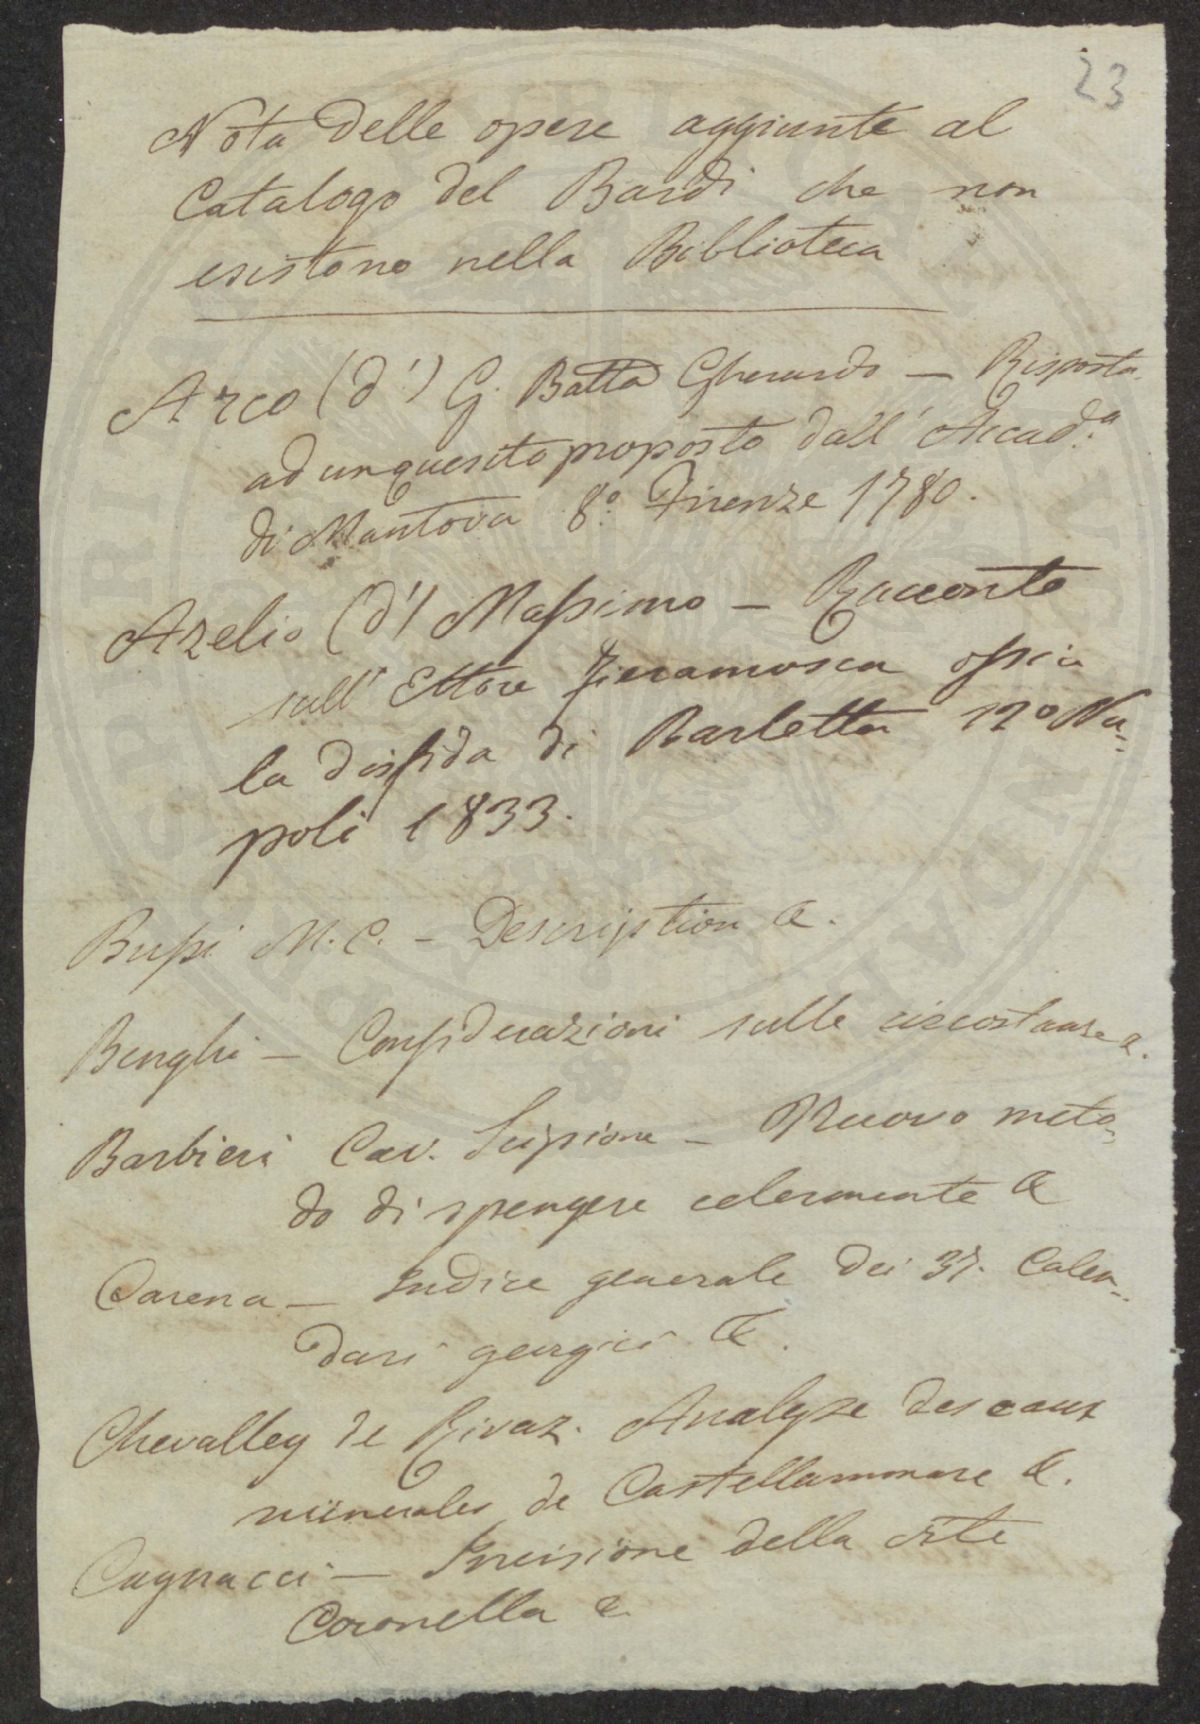 23
Nota delle opere aggiunte al
Catalogo del Bardi che non
esistono nella Biblioteca
Arco (d') G. Batta Gherardo — Risposta
ad un quesito proposto dall' Accad.a
di Mantova 8.o Firenze 1780.
Azelio (d') Massimo — Racconto
sull' Ettore Fieramosca ossia
la disfida di Barletta 12o Na-
poli 1833.
M. C. — Description &.
Considerazioni sulle circostanze &.
Barbieri Cav. Scipione — Nuovo meto-
do di spengere celermente &
Carena — Indice generale dei 37. Calen-
dari georgici &.
Chevalley de Rivaz. Analyse des eaux
minerales de Castellammare &.
Cagnacci — Incisione della
Coronella &